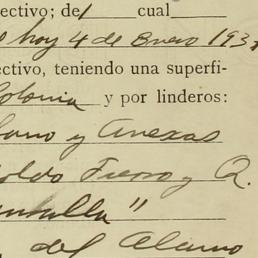 ectivo; del cual
hoy 4 de Enero 193
ectivo, teniendo una superfi-
Colonia y por linderos:
y Anexas
oldo Fierro y R.
"
del Alamo